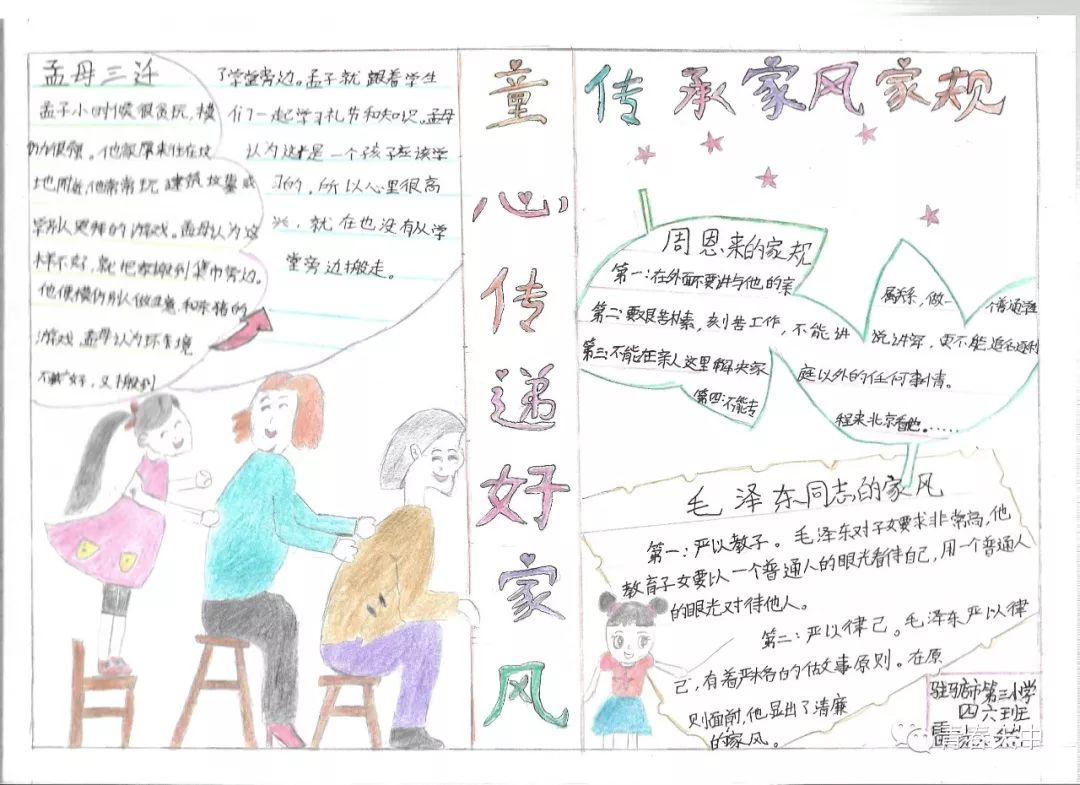 孟母三迁
孟子小时候很贪玩，模
仿力很强。他家原来住在坟
地附近，他常常玩建筑坟墓或
学别人哭拜的游戏。孟母认为这
样不好，就把家搬到集市旁边。
他便模仿别人做生意和杀猪的
游戏，孟母认为环境
不好，又搬到
了学堂旁边。孟子就跟着学生
们一起学习礼节和知识。孟母
认为这才是一个孩子应该学
习的，所以心里很高
兴，就在也没有从学
堂旁边搬走。
童心传递好家风
传承家风家规
周恩来的家规
第一：在外面不要讲与他的亲
属关系，做一个普通
第二：要艰苦朴素，刻苦工作，不能讲
说讲究，更不能追名逐利
第三：不能在亲人这里解决家
庭以外的任何事情。
第四：不能专
程来北京看他。……
毛泽东同志的家风
第一：严以教子。毛泽东对子女要求非常高，他
教育子女要以一个普通人的眼光看待自己，用一个普通人
的眼光对待他人。
第二：严以律己。毛泽东严以律
己，有着严格的做事原则。在原
则面前，他显出了清廉
的家风。
驻马店市第三小学
四六班